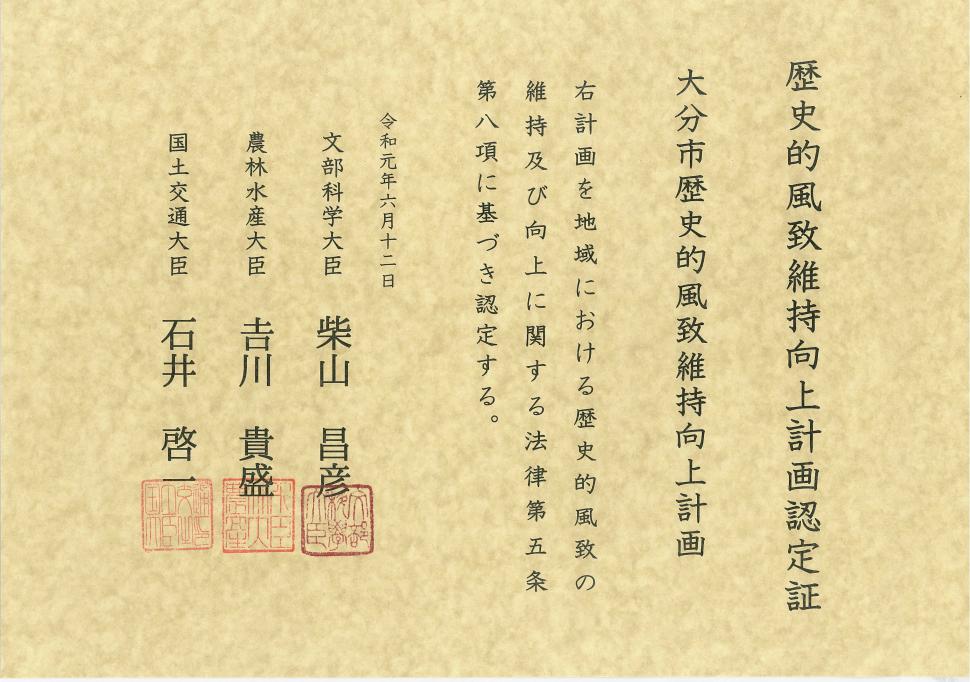 歴史的風致維持向上計画認定証
大分市歴史的風致維持向上計画
右計画を地域における歴史的風致の
維持及び向上に関する法律第五条
第八項に基づき認定する。
令和元年六月十二日
文部科学大臣 柴山 昌彦
農林水産大臣 𠮷川 貴盛
国土交通大臣 石井 啓一